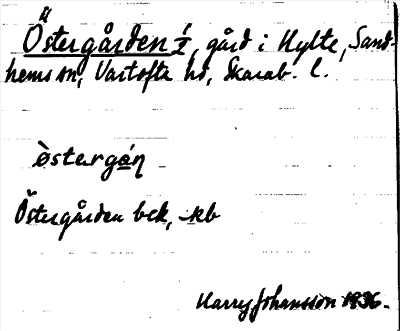 Östergården ½, gård i Hylte, Sand-
hems sn, Vartofta hd, Skarab. l.
östergɷ́ṇ
Östergården bck, kb
Harry Johansson 1936.